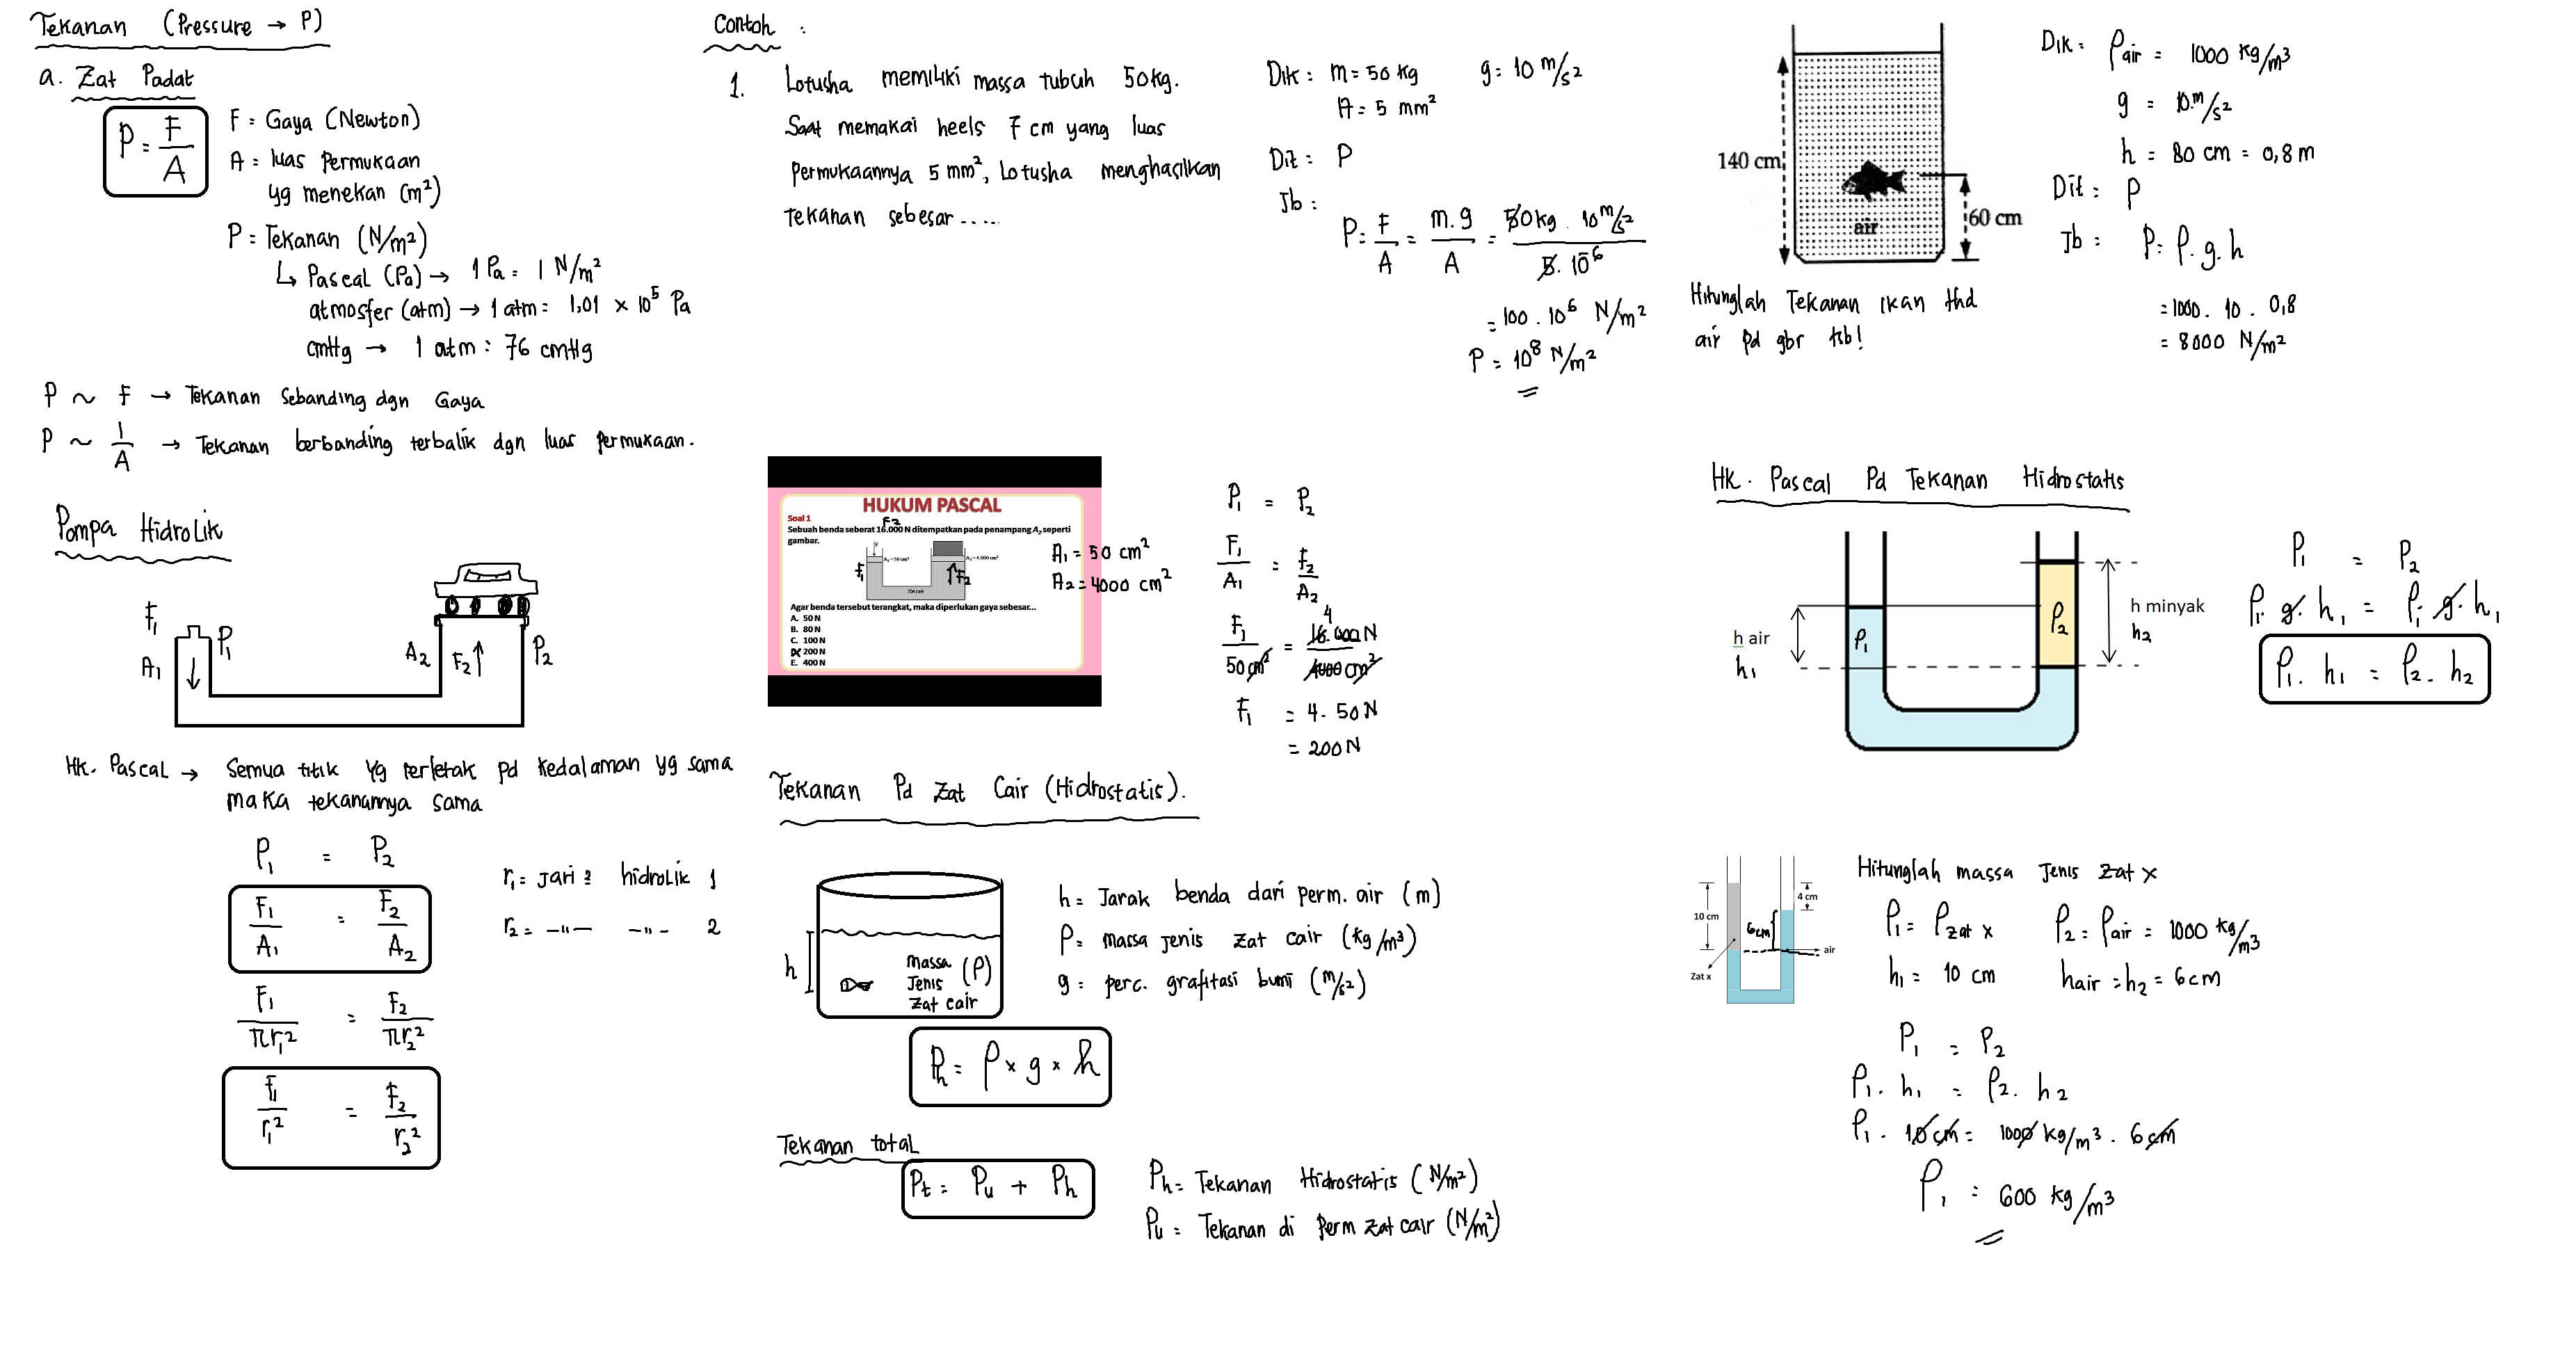 Tekanan (Pressure → P)
a. Zat Padat
P = F/A
F = Gaya (Newton)
A = luas Permukaan
yg menekan (m²)
P = Tekanan (N/m²)
↳ Pascal (Pa) → 1 Pa = 1 N/m²
atmosfer (atm) → 1 atm = 1,01 × 10⁵ Pa
cmHg → 1 atm = 76 cmHg
P ~ F → Tekanan Sebanding dgn Gaya
P ~ 1/A → Tekanan berbanding terbalik dgn luas permukaan.
Pompa Hidrolik
F₁
A₁
P₁
A₂
F₂
P₂
Hk. Pascal → Semua titik yg terletak pd kedalaman yg sama
maka tekanannya sama
P₁ = P₂
F₁/A₁ = F₂/A₂
F₁/πr₁² = F₂/πr₂²
F₁/r₁² = F₂/r₂²
r₁ = Jari² hidrolik 1
r₂ = -"- -"- 2
Contoh :
1. Lotusha memiliki massa tubuh 50kg.
Saat memakai heels 7 cm yang luas
Permukaannya 5 mm², Lotusha menghasilkan
tekanan sebesar .....
Dik : m = 50 kg g = 10 m/s²
A = 5 mm²
Dit : P
Jb :
P = F/A = m.g/A = 50kg . 10 m/s² / 5. 10⁻⁶
= 100 . 10⁶ N/m²
P = 10⁸ N/m²
HUKUM PASCAL
Soal 1
F₂
Sebuah benda seberat 16.000 N ditempatkan pada penampang A₂ seperti
gambar.
F
A₁ = 50 cm²
A₂ = 4.000 cm²
F₁
F₂
Zat cair
Agar benda tersebut terangkat, maka diperlukan gaya sebesar...
A. 50 N
B. 80 N
C. 100 N
D. 200 N
E. 400 N
A₁ = 50 cm²
A₂ = 4000 cm²
P₁ = P₂
F₁/A₁ = F₂/A₂
4
F₁/50 cm² = 16.000 N/4000 cm²
F₁ = 4. 50 N
= 200 N
Tekanan Pd Zat Cair (Hidrostatis).
h
massa
Jenis (ρ)
Zat cair
h = Jarak benda dari perm. air (m)
ρ = massa jenis zat cair (kg/m³)
g = perc. grafitasi bumi (m/s²)
Ph = ρ × g × h
Tekanan total
Pt = Pu + Ph
Ph = Tekanan Hidrostatis (N/m²)
Pu = Tekanan di Perm zat cair (N/m²)
140 cm
air
60 cm
Hitunglah Tekanan ikan thd
air pd gbr tsb!
Dik : ρair = 1000 kg/m³
g = 10 m/s²
h = 80 cm = 0,8 m
Dit : P
Jb : P = ρ.g.h
= 1000. 10 . 0,8
= 8000 N/m²
Hk. Pascal Pd Tekanan Hidrostatis
h air
h₁
ρ₁
ρ₂
h minyak
h₂
P₁ = P₂
ρ₁. g. h₁ = ρ₁. g. h₁
ρ₁. h₁ = ρ₂. h₂
10 cm
4 cm
6cm
air
Zat x
Hitunglah massa Jenis zat x
ρ₁ = ρzat x ρ₂ = ρair = 1000 kg/m³
h₁ = 10 cm hair = h₂ = 6cm
P₁ = P₂
ρ₁. h₁ = ρ₂. h₂
ρ₁. 10 cm = 1000 kg/m³ . 6 cm
ρ₁ = 600 kg/m³